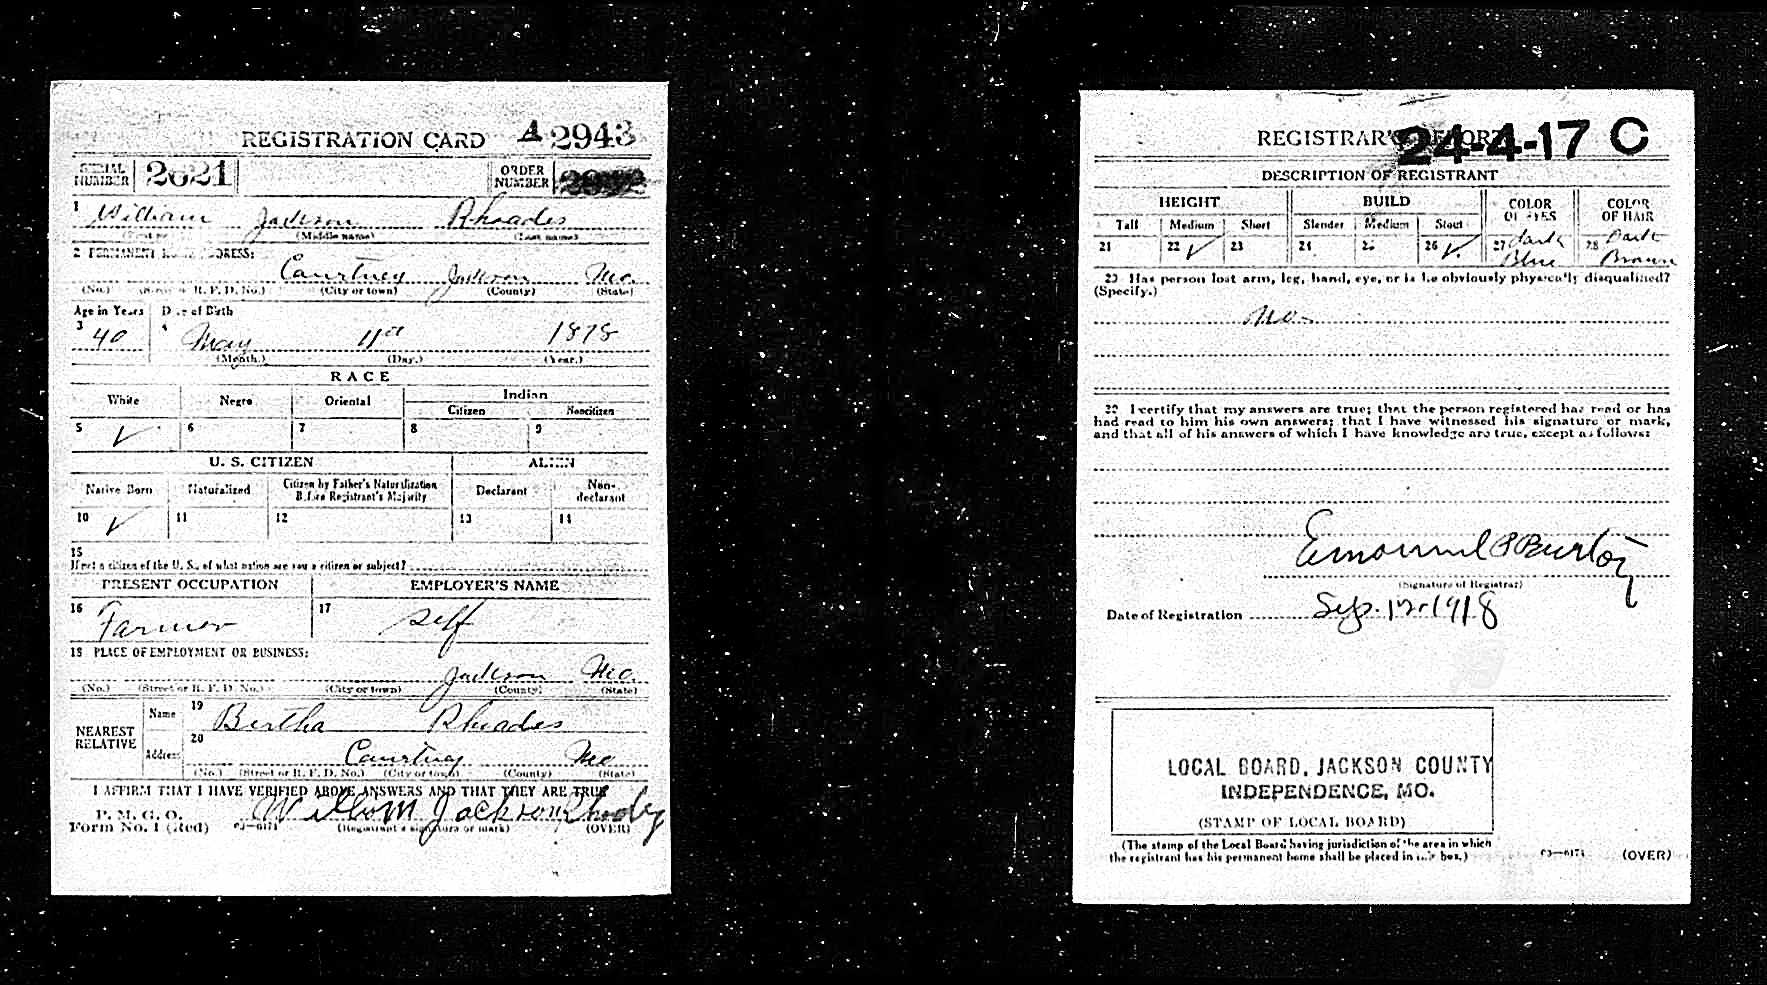 REGISTRATION CARD A 2943
SERIAL NUMBER 2621 ORDER NUMBER
1 William Jackson Rhoades
(First name) (Middle name) (Last name)
2 PERMANENT HOME ADDRESS:
Courtney Jackson Mo.
(No.) (Street or R. F. D. No.) (City or town) (County) (State)
Age in Years Date of Birth
3 40 4 May 11th 1878
(Month.) (Day.) (Year.)
RACE
White Negro Oriental Indian
Citizen Noncitizen
5 ✓ 6 7 8 9
U. S. CITIZEN ALIEN
Native Born Naturalized Citizen by Father's Naturalization Before Registrant's Majority Declarant Non-declarant
10 ✓ 11 12 13 14
15
If not a citizen of the U. S., of what nation are you a citizen or subject?
PRESENT OCCUPATION EMPLOYER'S NAME
16 Farmer 17 self
18 PLACE OF EMPLOYMENT OR BUSINESS:
Jackson Mo.
(No.) (Street or R. F. D. No.) (City or town) (County) (State)
NEAREST RELATIVE Name 19 Bertha Rhoades
Address 20 Courtney Mo
(No.) (Street or R. F. D. No.) (City or town) (County) (State)
I AFFIRM THAT I HAVE VERIFIED ABOVE ANSWERS AND THAT THEY ARE TRUE
P. M. G. O.
Form No. 1 (Red) 03—6171 William Jackson Rhoades
(Registrant's signature or mark) (OVER)
REGISTRAR'S REPORT 24-4-17 C
DESCRIPTION OF REGISTRANT
HEIGHT BUILD COLOR OF EYES COLOR OF HAIR
Tall Medium Short Slender Medium Stout
21 22 ✓ 23 24 25 26 ✓ 27 Dark Blue 28 Dark Brown
29 Has person lost arm, leg, hand, eye, or is he obviously physically disqualified?
(Specify.)
No
30 I certify that my answers are true; that the person registered has read or has
had read to him his own answers; that I have witnessed his signature or mark,
and that all of his answers of which I have knowledge are true, except as follows:
(Signature of Registrar)
Date of Registration Sep. 12 1918
LOCAL BOARD, JACKSON COUNTY
INDEPENDENCE, MO.
(STAMP OF LOCAL BOARD)
(The stamp of the Local Board having jurisdiction of the area in which
the registrant has his permanent home shall be placed in this box.)
03—6171 (OVER)